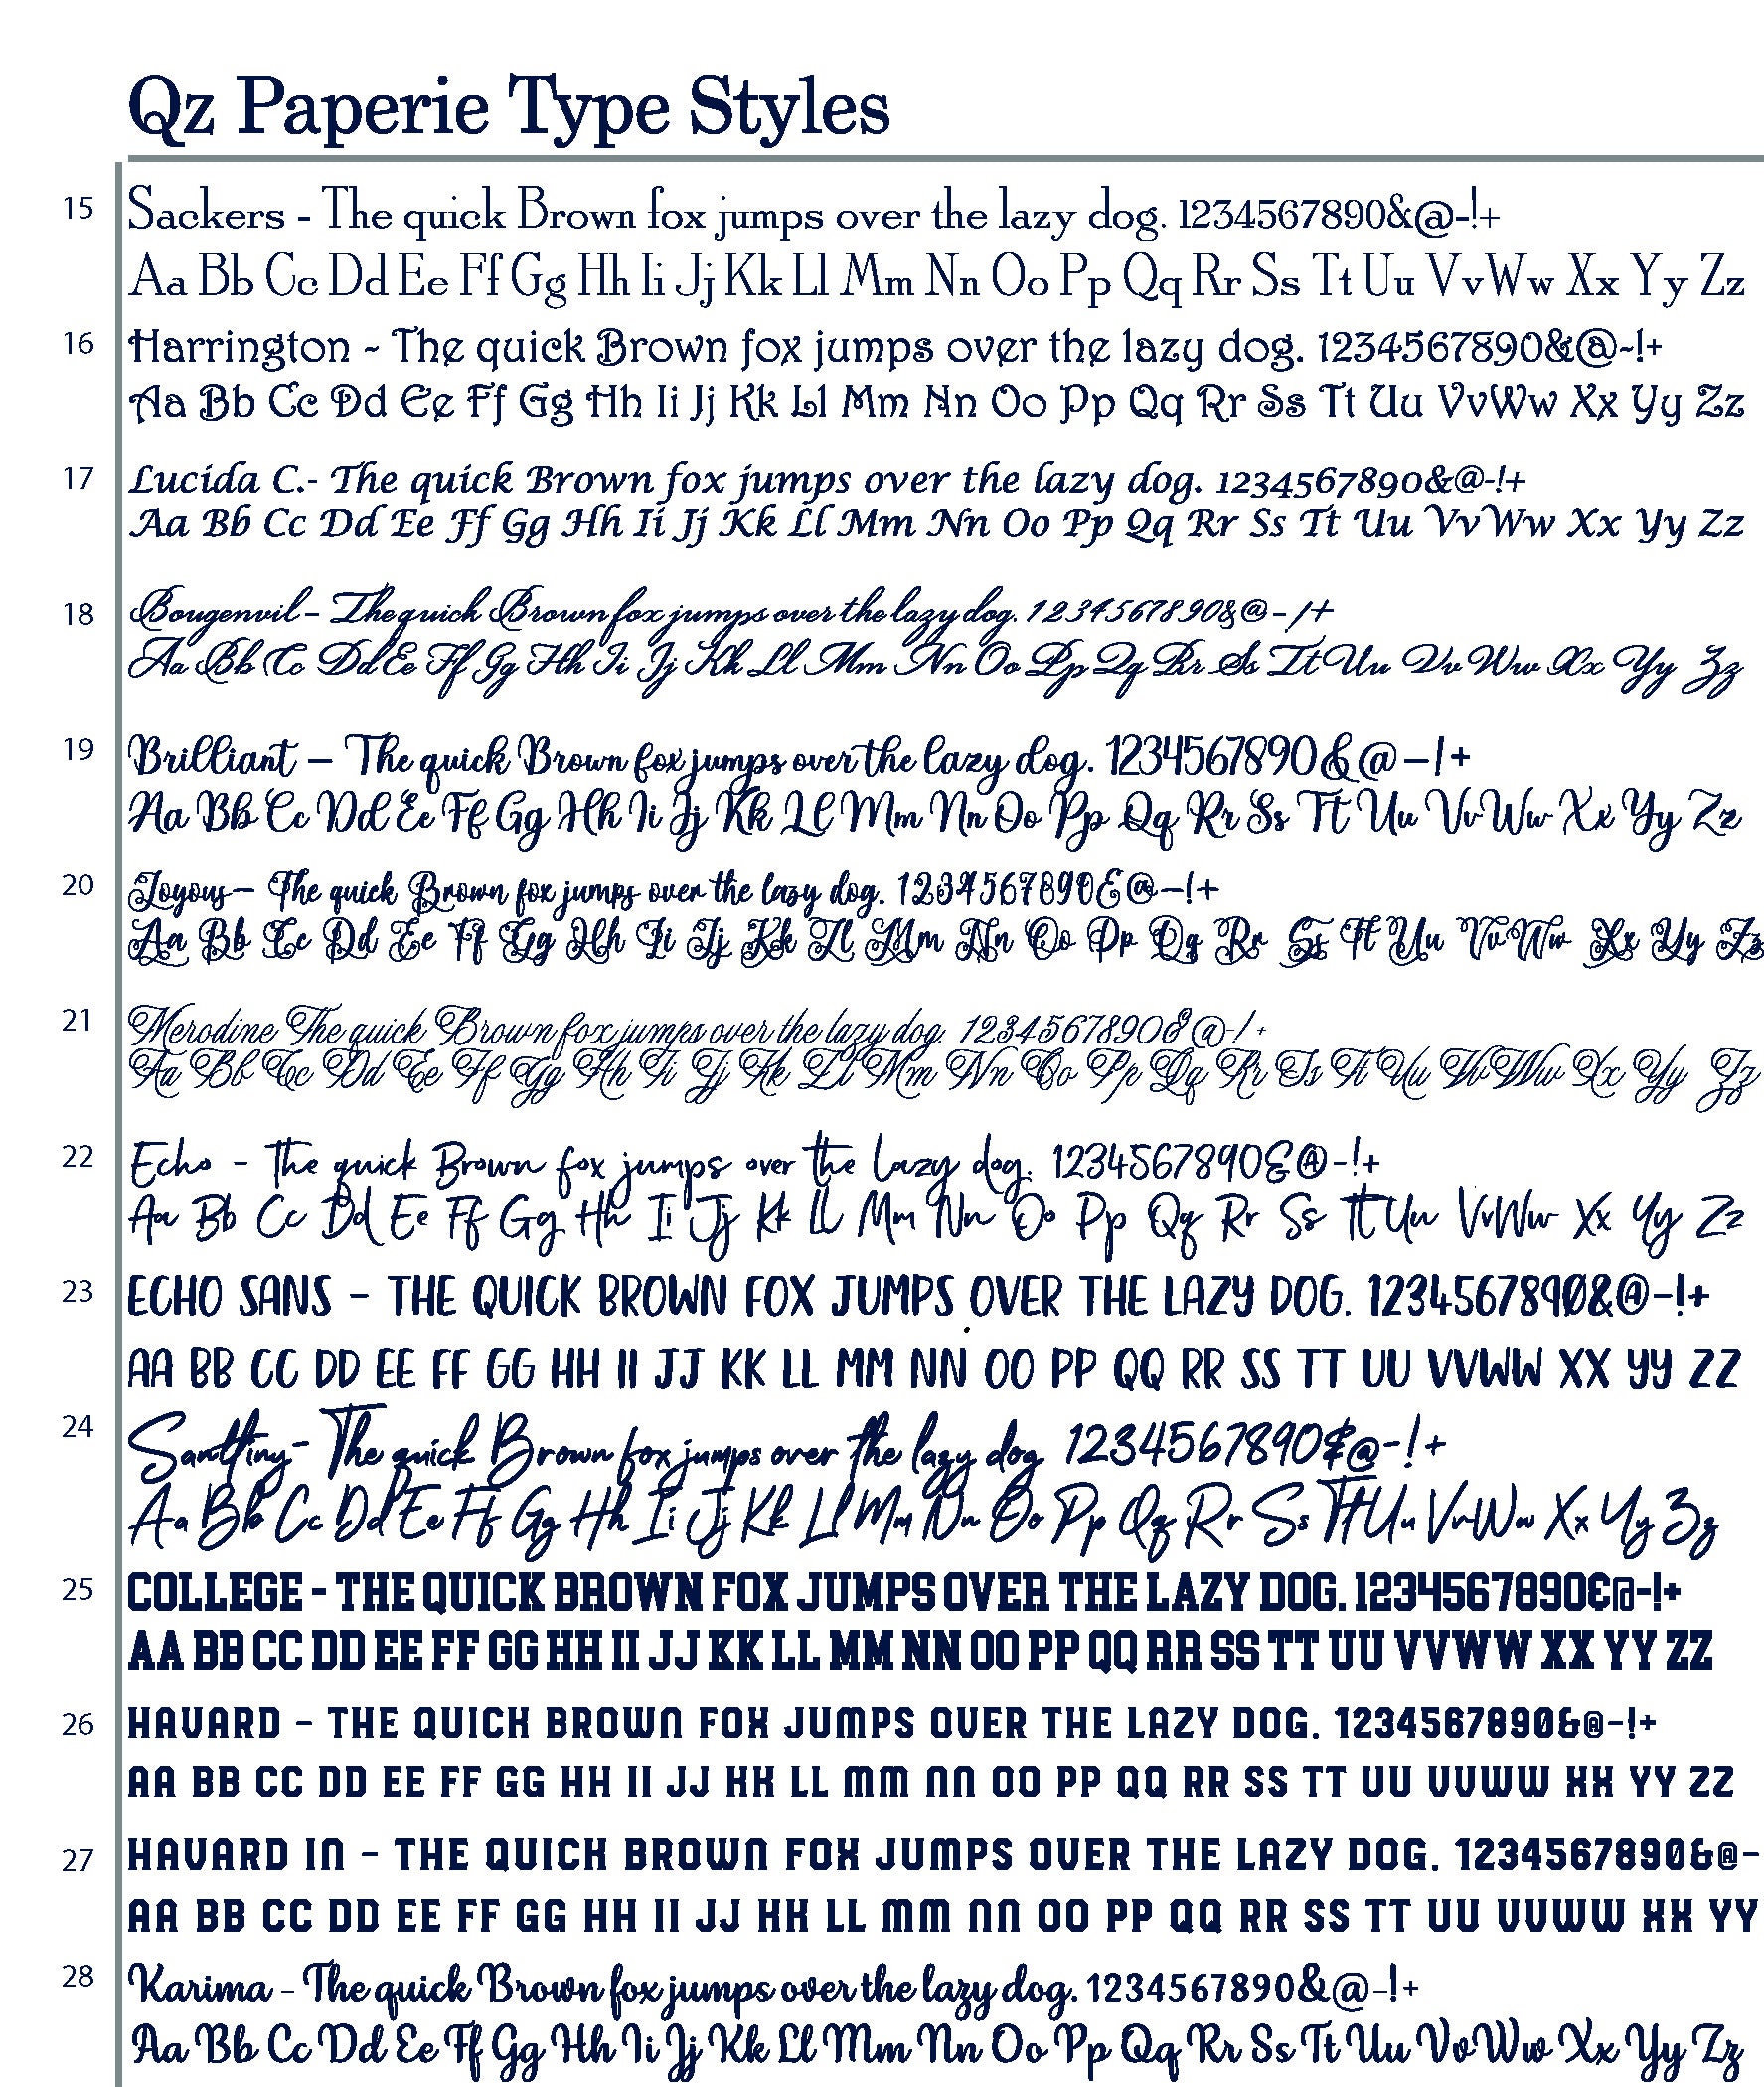 Qz Paperie Type Styles
15 Sackers - The quick Brown fox jumps over the lazy dog. 1234567890&@-!+
Aa Bb Cc Dd Ee Ff Gg Hh Ii Jj Kk Ll Mm Nn Oo Pp Qq Rr Ss Tt Uu VvWw Xx Yy Zz
16 Harrington - The quick Brown fox jumps over the lazy dog. 1234567890&@-!+
Aa Bb Cc Dd Ee Ff Gg Hh Ii Jj Kk Ll Mm Nn Oo Pp Qq Rr Ss Tt Uu VvWw Xx Yy Zz
17 Lucida C.- The quick Brown fox jumps over the lazy dog. 1234567890&@-!+
Aa Bb Cc Dd Ee Ff Gg Hh Ii Jj Kk Ll Mm Nn Oo Pp Qq Rr Ss Tt Uu VvWw Xx Yy Zz
18 Bougenvil - The quick Brown fox jumps over the lazy dog. 1234567890&@-!+
Aa Bb Cc Dd Ee Ff Gg Hh Ii Jj Kk Ll Mm Nn Oo Pp Qq Rr Ss Tt Uu Vv Ww Xx Yy Zz
19 Brilliant - The quick Brown fox jumps over the lazy dog. 1234567890&@-!+
Aa Bb Cc Dd Ee Ff Gg Hh Ii Jj Kk Ll Mm Nn Oo Pp Qq Rr Ss Tt Uu VvWw Xx Yy Zz
20 Joyous- The quick Brown fox jumps over the lazy dog. 1234567890&@-!+
Aa Bb Cc Dd Ee Ff Gg Hh Ii Jj Kk Ll Mm Nn Oo Pp Qq Rr Ss Tt Uu VvWw Xx Yy Zz
21 Merodine The quick Brown fox jumps over the lazy dog. 1234567890&@-!+
Aa Bb Cc Dd Ee Ff Gg Hh Ii Jj Kk Ll Mm Nn Oo Pp Qq Rr Ss Tt Uu VvWw Xx Yy Zz
22 Echo - The quick Brown fox jumps over the lazy dog. 1234567890&@-!+
Aa Bb Cc Dd Ee Ff Gg Hh Ii Jj Kk Ll Mm Nn Oo Pp Qq Rr Ss Tt Uu VvWw Xx Yy Zz
23 ECHO SANS - THE QUICK BROWN FOX JUMPS OVER THE LAZY DOG. 1234567890&@-!+
AA BB CC DD EE FF GG HH II JJ KK LL MM NN OO PP QQ RR SS TT UU VVWW XX YY ZZ
24 Santtiny- The quick Brown fox jumps over the lazy dog 1234567890&@-!+
Aa Bb Cc Dd Ee Ff Gg Hh Ii Jj Kk Ll Mm Nn Oo Pp Qq Rr Ss Tt Uu VvWw Xx Yy Zz
25 COLLEGE - THE QUICK BROWN FOX JUMPS OVER THE LAZY DOG. 1234567890&@-!+
AA BB CC DD EE FF GG HH II JJ KK LL MM NN OO PP QQ RR SS TT UU VVWW XX YY ZZ
26 HAVARD - THE QUICK BROWN FOX JUMPS OVER THE LAZY DOG. 1234567890&@-!+
AA BB CC DD EE FF GG HH II JJ KK LL MM NN OO PP QQ RR SS TT UU VVWW XX YY ZZ
27 HAVARD IN - THE QUICK BROWN FOX JUMPS OVER THE LAZY DOG. 1234567890&@-
AA BB CC DD EE FF GG HH II JJ KK LL MM NN OO PP QQ RR SS TT UU VVWW XX YY
28 Karima - The quick Brown fox jumps over the lazy dog. 1234567890&@-!+
Aa Bb Cc Dd Ee Ff Gg Hh Ii Jj Kk Ll Mm Nn Oo Pp Qq Rr Ss Tt Uu VvWw Xx Yy Zz